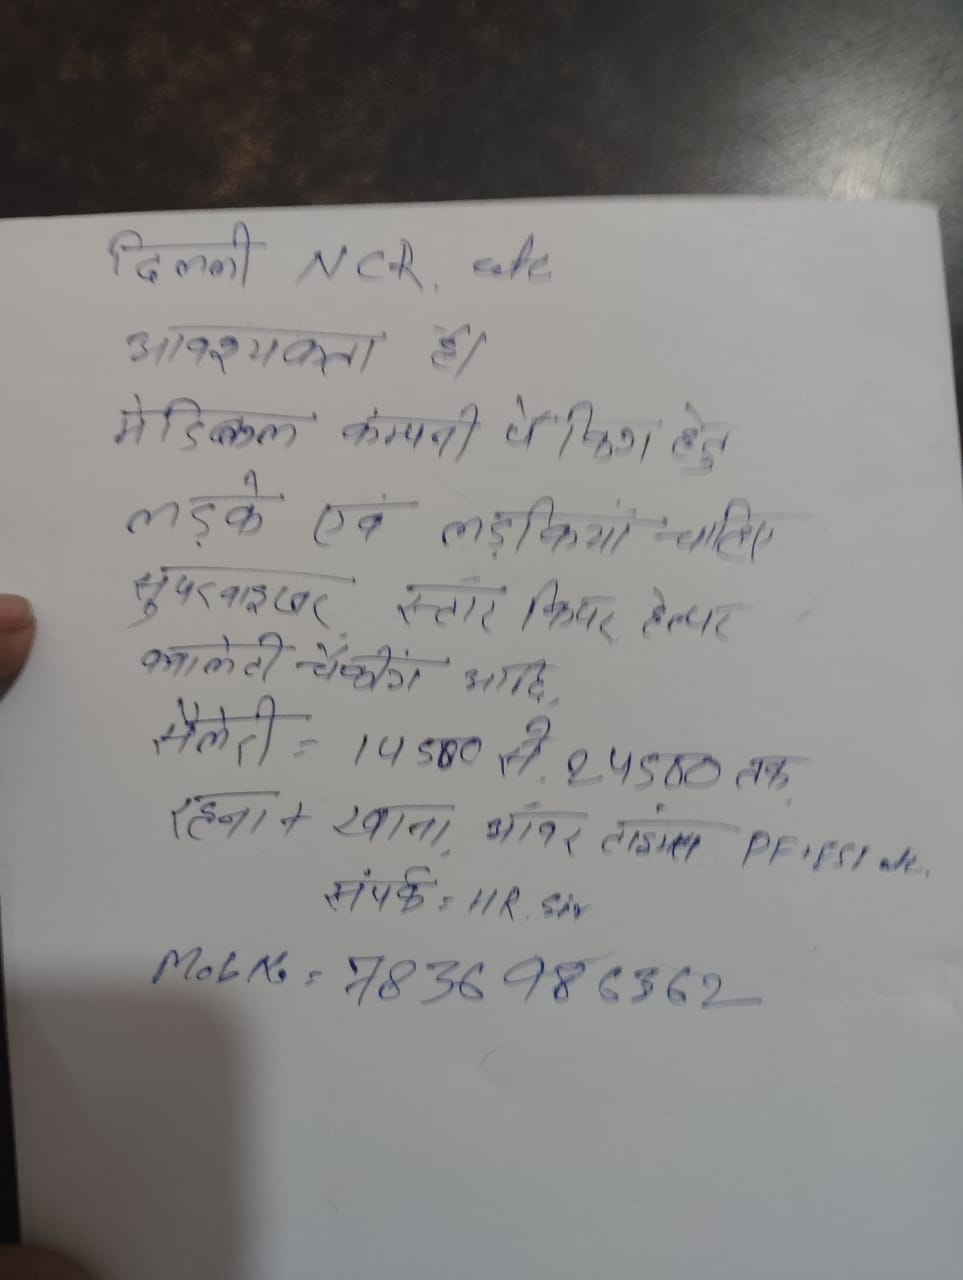 दिल्ली NCR. etc
आवश्यकता है।
मेडिकल कंम्पनी पैंकिग हेतु
लड़के एवं लड़कियां चाहिए
सुंपरवाइजर, स्टोर किपर, हेल्पर
क्वालेटी चैंकींग आदि,
सैलेरी = 14500 से 24500 तक,
रहना + खाना, ओवर टाइम PF+ESI etc.
संपर्क = HR. Sir
Mob No = 7836986362